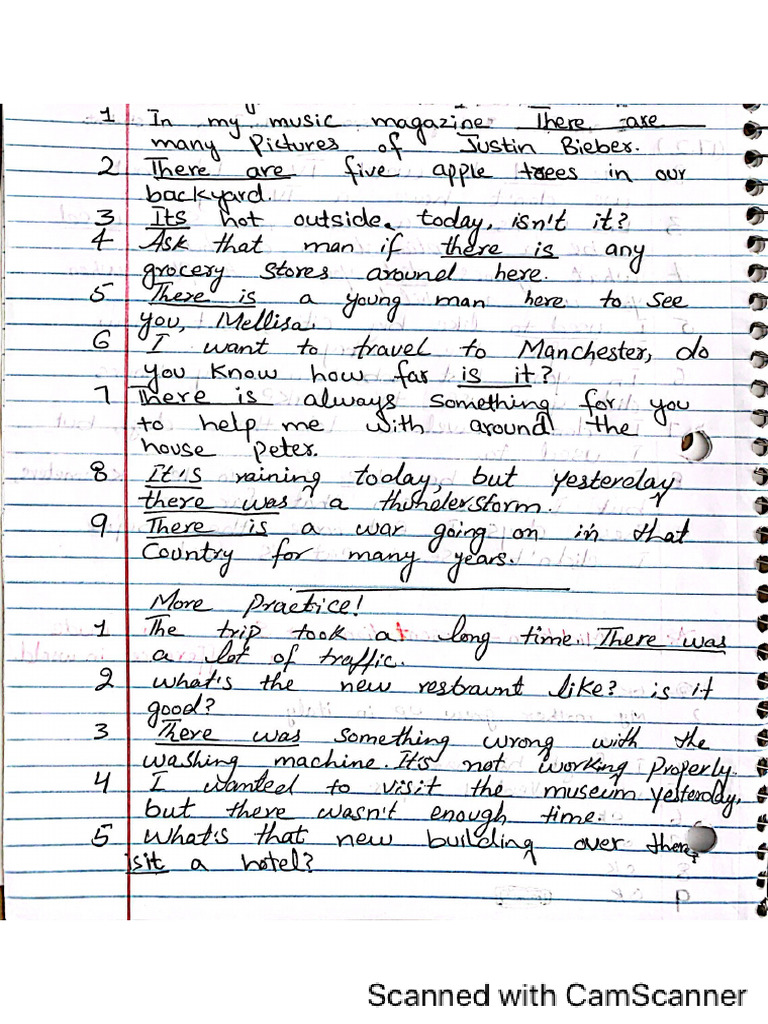 1 In my music magazine There are
many Pictures of Justin Bieber.
2 There are five apple trees in our
backyard.
3 Its hot outside today, isn't it?
4 Ask that man if there is any
grocery stores around here.
5 There is a young man here to see
you, Mellisa.
6 I want to travel to Manchester, do
you know how far is it?
7 There is always something for you
to help me with around the
house Peter.
8 It is raining today, but yesterday
there was a thunderstorm.
9 There is a war going on in that
Country for many years.
More Practice!
1 The trip took a long time. There was
a lot of traffic.
2 What's the new restraunt like? is it
good?
3 There was something wrong with the
washing machine. It's not working Properly.
4 I wanted to visit the museum yesterday,
but there wasn't enough time.
5 What's that new building over there?
isit a hotel?
Scanned with CamScanner